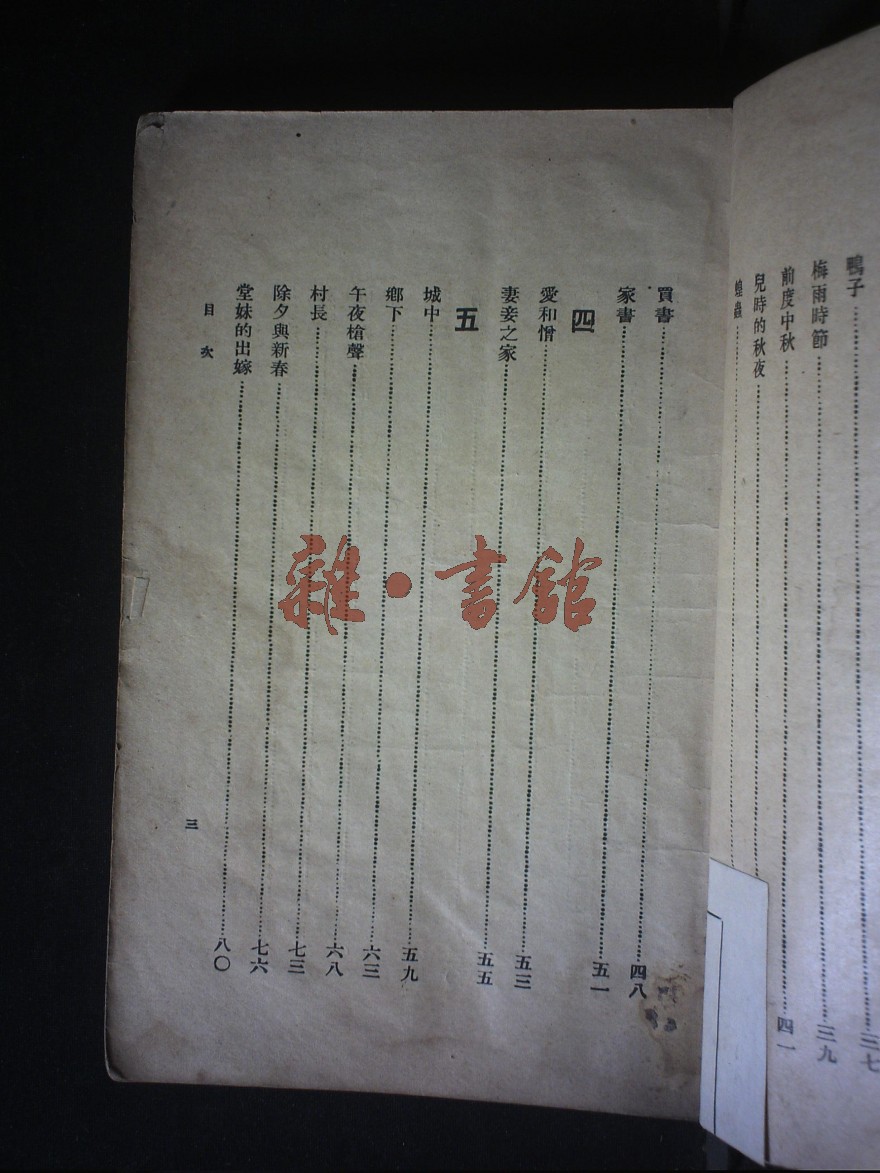 鴨子……三七
梅雨時節……三九
前度中秋……四一
兒時的秋夜……
蝗蟲……
買書……四八
家書……五一
四
愛和憎……五三
妻妾之家……五五
五
城中……五九
鄉下……六三
午夜槍聲……六八
村長……七三
除夕與新春……七六
堂妹的出嫁……八〇
目次
三
雜·書館